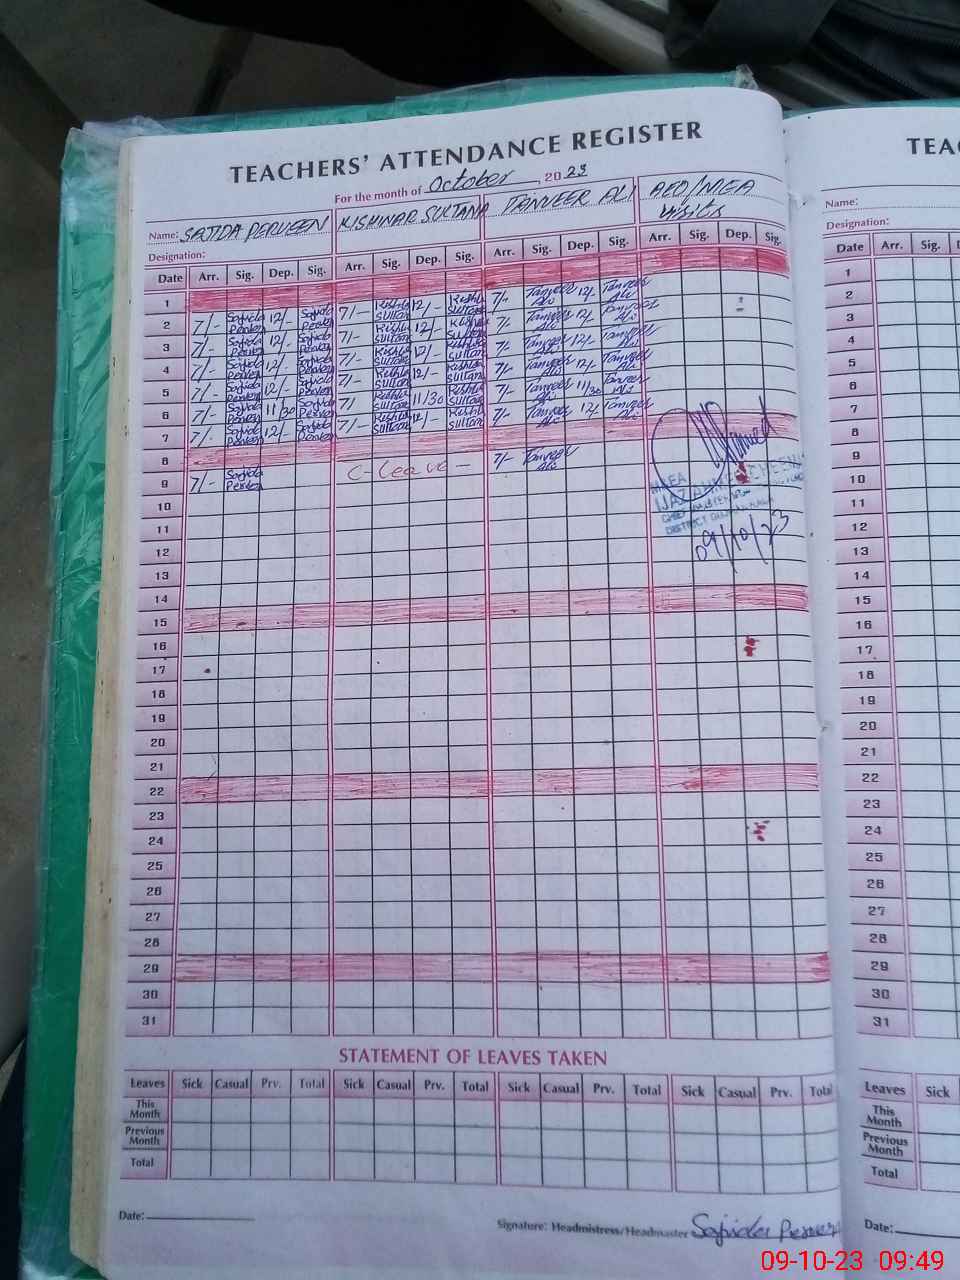 TEACHERS' ATTENDANCE REGISTER
For the month of October, 2023
Name: SAJIDA PERVEEN KISHWAR SULTANA TANVEER ALI AEO/MEA
visits
Designation:
Date Arr. Sig. Dep. Sig. Arr. Sig. Dep. Sig. Arr. Sig. Dep. Sig. Arr. Sig. Dep. Sig.
1
2 7/- Sajida Perveen 12/- Sajida Perveen 7/- Kishwar Sultana 12/- Kishwar Sultana 7/- Tanveer Ali 12/- Tanveer Ali
3 7/- Sajida Perveen 12/- Sajida Perveen 7/- Kishwar Sultana 12/- Kishwar Sultana 7/- Tanveer Ali 12/- Tanveer Ali
4 7/- Sajida Perveen 12/- Sajida Perveen 7/- Kishwar Sultana 12/- Kishwar Sultana 7/- Tanveer Ali 12/- Tanveer Ali
5 7/- Sajida Perveen 12/- Sajida Perveen 7/- Kishwar Sultana 12/- Kishwar Sultana 7/- Tanveer Ali 12/- Tanveer Ali
6 7/- Sajida Perveen 11/30 Sajida Perveen 7/ Kishwar Sultana 11/30 Kishwar Sultana 7/- Tanveer Ali 11/30 Tanveer Ali
7 7/- Sajida Perveen 12/- Sajida Perveen 7/- Kishwar Sultana 12/- Kishwar Sultana 7/- Tanveer Ali 12/- Tanveer Ali
8
9 7/- Sajida Perveen C-Leave- 7/- Tanveer Ali
10
11
12
13
14
15
16
17
18
19
20
21
22
23
24
25
26
27
28
29
30
31
MEA
DISTRICT
09/10/23
STATEMENT OF LEAVES TAKEN
Leaves Sick Casual Prv. Total Sick Casual Prv. Total Sick Casual Prv. Total Sick Casual Prv. Total
This Month
Previous Month
Total
Date:
Signature: Headmistress/Headmaster Sajida Perveen
TEA
Name:
Designation:
Date Arr. Sig.
1
2
3
4
5
6
7
8
9
10
11
12
13
14
15
16
17
18
19
20
21
22
23
24
25
26
27
28
29
30
31
Leaves Sick
This Month
Previous Month
Total
Date:
09-10-23 09:49